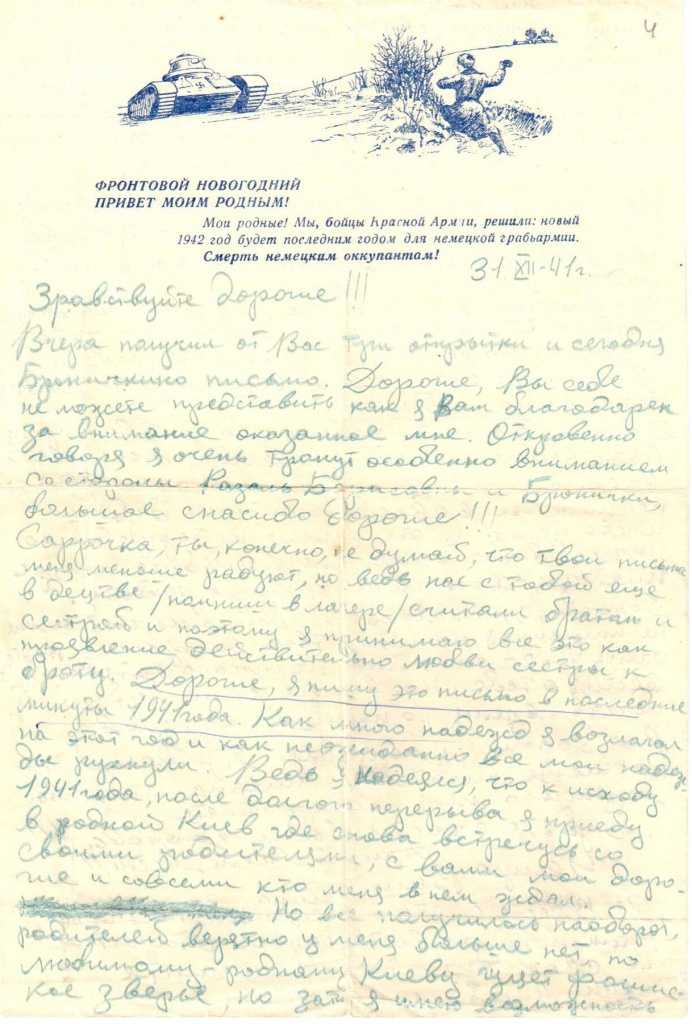 4
ФРОНТОВОЙ НОВОГОДНИЙ
ПРИВЕТ МОИМ РОДНЫМ!
Мои родные! Мы, бойцы Красной Армии, решили: новый
1942 год будет последним годом для немецкой грабьармии.
Смерть немецким оккупантам!
31 XII-41г.
Зравствуйте дорогие!!!
Вчера получил от Вас три открытки и сегодня
Броничкино письмо. Дорогие, Вы себе
не можете представить как я Вам благодарен
за внимание оказанное мне. Откровенно
говоря я очень тронут особенно вниманием
со стороны Борисовны и Бронички,
большое спасибо дорогие!!!
Саррочка, ты, конечно, не думай, что твои письма
меня меньше радуют, но ведь нас с тобой еще
в детстве /помниш в лагере/ считали братом и
сестрой и поэтому я принимаю все это как
проявление действительно любви сестры к
брату. Дорогие, я пишу это письмо в последние
минуты 1941 года. Как много надежд я возлагал
на этот год и как неожиданно все мои надеж-
ды рухнули. Ведь я надеялся, что к исходу
1941 года, после долгого перерыва я приеду
в родной Киев где снова встречусь со
своими родителями, с вами мои доро-
гие и совсеми кто меня в нем ждал.
Но все получилось наоборот,
родителей верятно у меня больше нет, по
любимому-родному Киеву фашис-
кое зверье, но зато я имею возможность